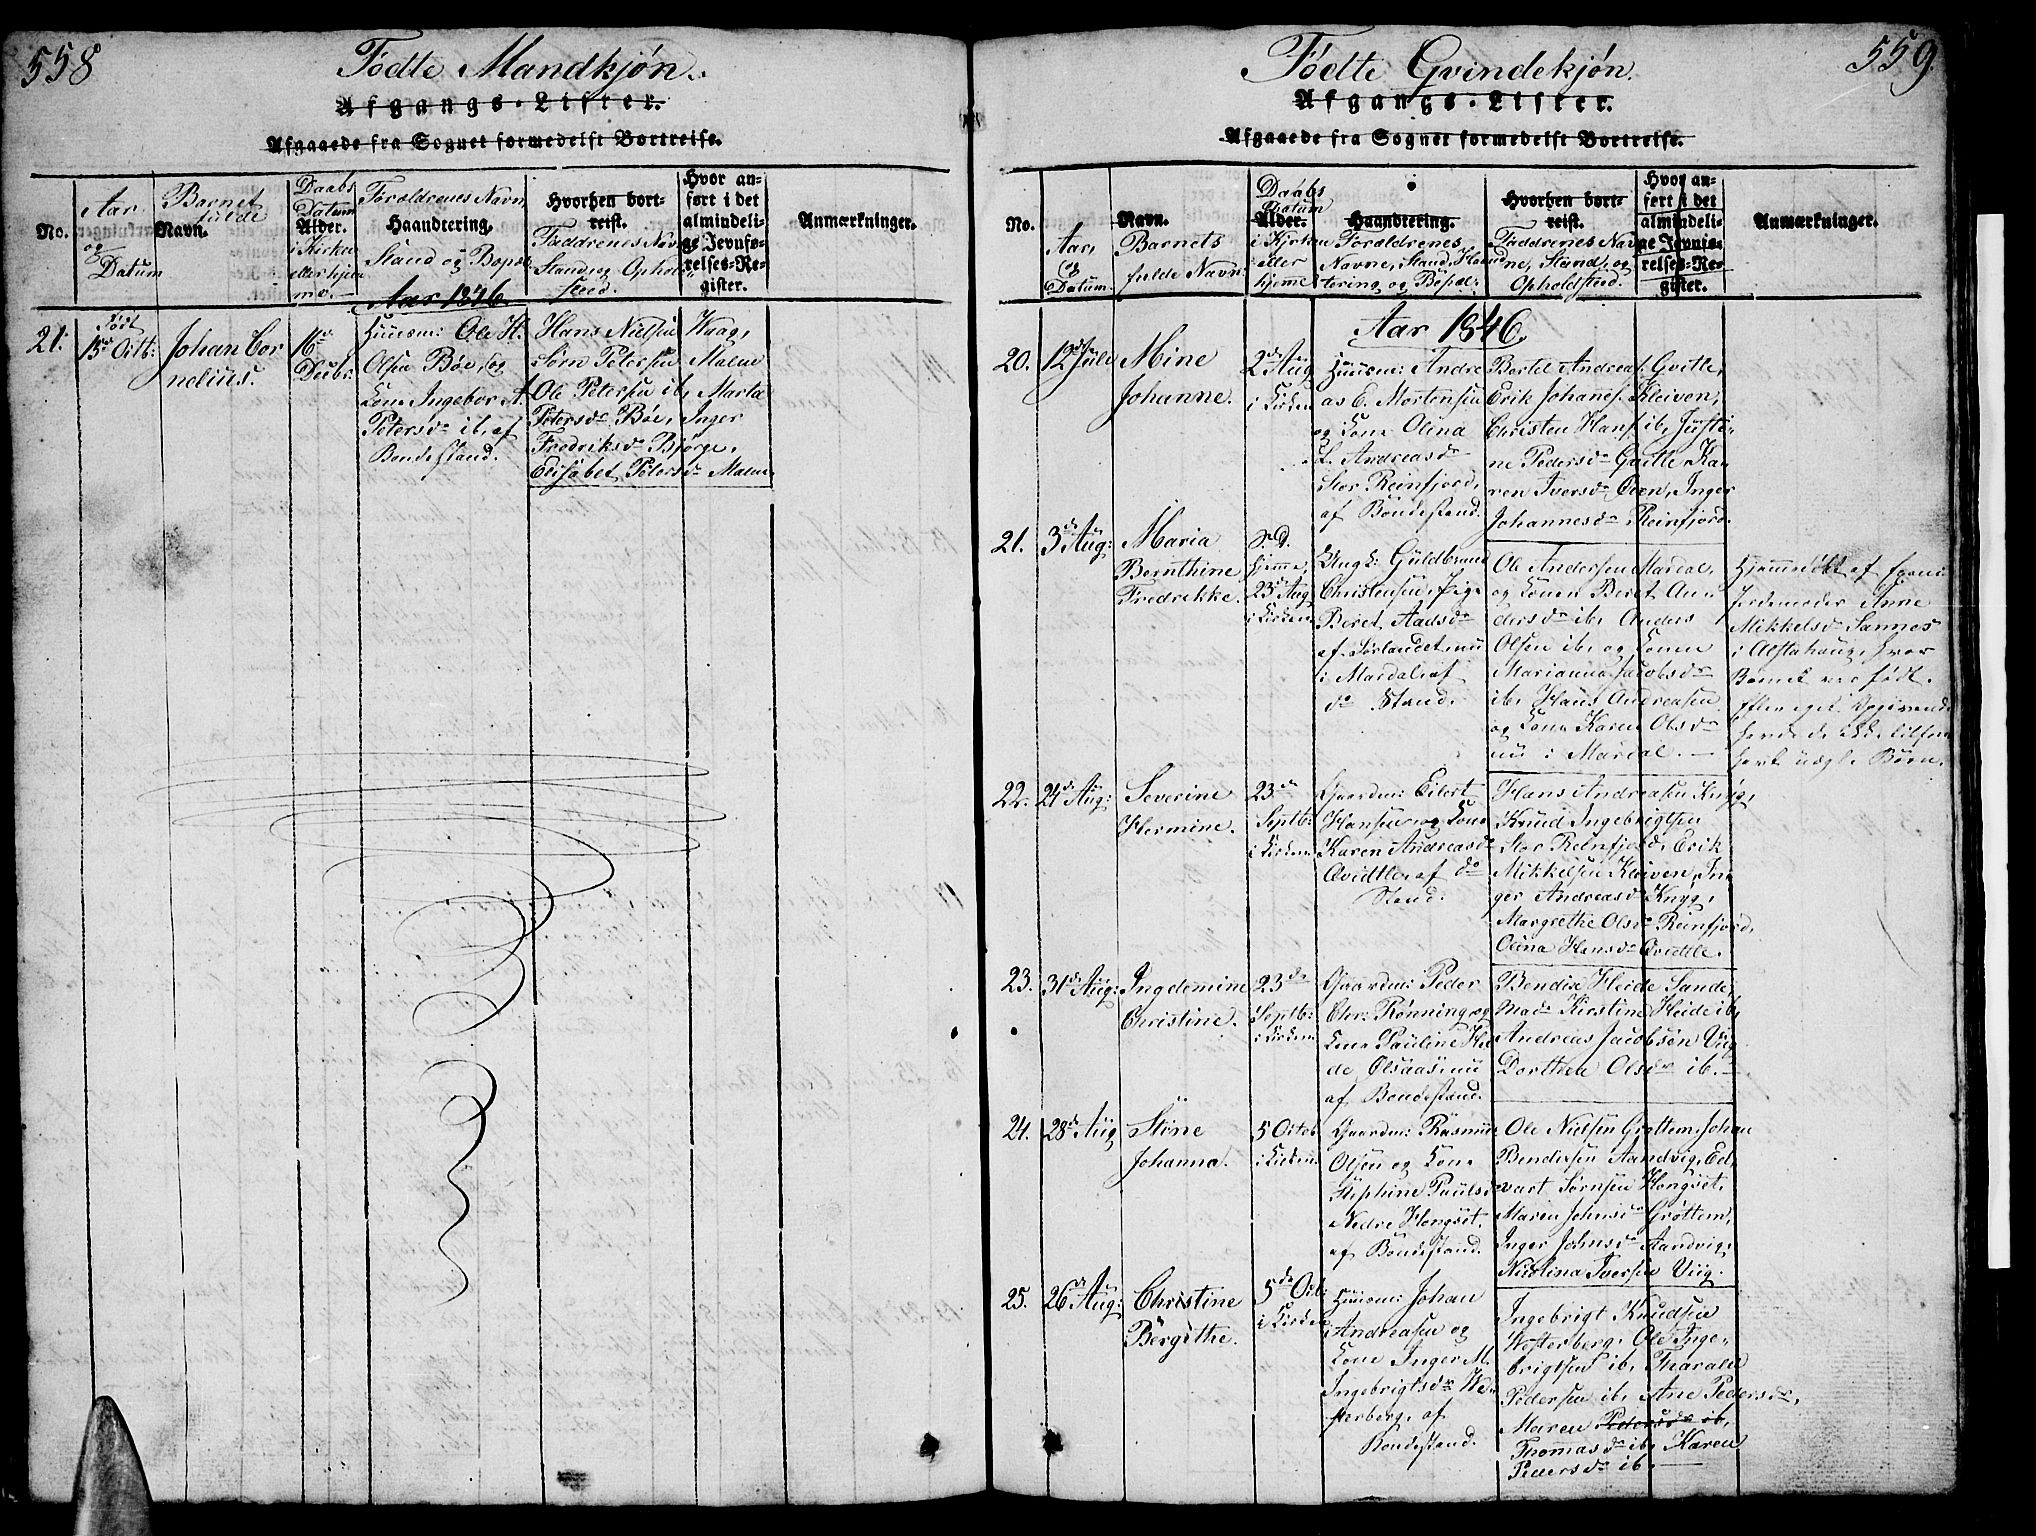 558
Födte Mandkjón.
Afgangs-Lister.
Afgaaede fra Sognet formedelst Bortreise.
No.
Aar og Datum
Barnet fulde Navn.
Daabs Datum Alder. i Kirken eller hjem mo.
Foroldrenes Navn Haandtering. Stand og Bopæl
Hvorhen bortreist. Faddrenes Navn Stand og Ophold sted.
Hvor anført i det almindelige Jevnførelses-Register.
Anmærkninger.
Aar 1846.
21.
Födt
15de Octb:
Johan Cor
nelius.
16de
Decbr:
Huusm: Ole H.
Olsen Böe, og
Kone Ingebor A.
Petersdr ib, af
Bondestand.
Hans Nielsen Haag,
Sörn Petersen Malm
Ole Petersen ib, Marta
Petersdr Böe, Inger
Fredriksdr Bjórge,
Elisabet Petersdr Malm.
559.
Födte Qvindekjón.
Afgangs-Lister.
Afgaaede fra Sognet formedelst Bortreise.
No.
Aar, og Datum.
Navn. Barnets fulde Navn.
Daabs Datum Alder. i Kirken eller hjemme
Haandtering. Foroldrenes Navne, Stand, Haandtering og Bopæl.
Hvorhen bortreist. Faddrenes Navne, Stand, og Opholdsted.
Hvor anført i det almindelige Jevnførelses-Register.
Anmærkninger.
Aar 1846.
20.
12de Juli
Mine
Johanne.
2de Aug
i Kirken
Huusm: Andre
as E. Mortensen
og Kone Olina
L. Andreasdr
Stor Reinfjord,
af Bondestand.
Bertel Andreas. Qvitte,
Erik Johanes. Kleiven,
Christen Hans. ib, Justi-
ne Pedersdr Qvitte, Ka-
ren Iversdr Öien, Inger
Johannesdr Reinfjord.
21.
3de Aug:
Maria
Bernthine
Fredrikke.
hjemme,
23de Aug
i Kirken
Ungk: Guldbrand
Christensen, Pige
Beret, Aadsdr
af Sörlandet, nu
i Mardal, af
do Stand.
Ole Andersen Mardal,
og Konen Beret An-
dersdr ib, Anders
Olsen ib, og Konen
Marianna Jacobsdr
ib, Hans Andreasen
og Kone Karen Olsdr
nu i Mardal.
Hjemmedöbt af
Jordemoder Anne
Mikkelsdr Sannes
i Alstahaug, hvor
Barnet var födt.
Efter eget Opgivende
havde de ikke tilforn
havt uægte Börn.
22.
21de Aug:
Severine
Hermine.
23de
Septb:
i Kirken
Gaardm: Eilert
Hansen og Kone
Karen Andreasdr
Qvidtle, af do
Stand.
Hans Andreasen Knyg,
Knud Ingebrigtsen
Stor Reinfjord, Erik
Mikkelsen Kleiven, In
ger Andreasdr Knyg,
Margrethe Olsdr Reinfjord,
Olina Hansdr Qvidtle.
23.
31de Aug:
Ingdemine
Christine.
23de
Septb:
i Kirken
Gaardm: Peder
Chr: Rönning og
Kone Pauline Hei
de Olsaas, nu
af Bondestand.
Bendix Heide Sande,
Mad. Kirstine Heide ib,
Andreas Jacobsön Viig
Dorthea Olsdr ib.
24.
28de Aug
Stine
Johanna.
5 Octob
i Kirken
Gaardm: Rasmus
Olsen og Kone
Stephine Pauls.
Nedre Hongset,
af Bondestand.
Ole Nielsen Gröttem, Johan
Bendixsen Aandvig, Ed
vart Sörnsen Hongset,
Maren Johnsdr Gröttem,
Inger Johnsdr Aandvig,
Nicolina Iversen Viig.
25.
26de Aug:
Christine
Bergithe.
5de Octb:
i Kirken
Huusm: Johan
Andreasen og
Kone Inger M.
Ingebrigtsdr We-
sterberg, af
Bondestand.
Ingebrigt Knudsen
Westerberg, Ole Inge-
brigtsen ib, Tharald
Pedersen ib, Ane Pedersdr,
Maren Petersdr ib,
Thomasdr ib, Karen
Pedersdr ib.